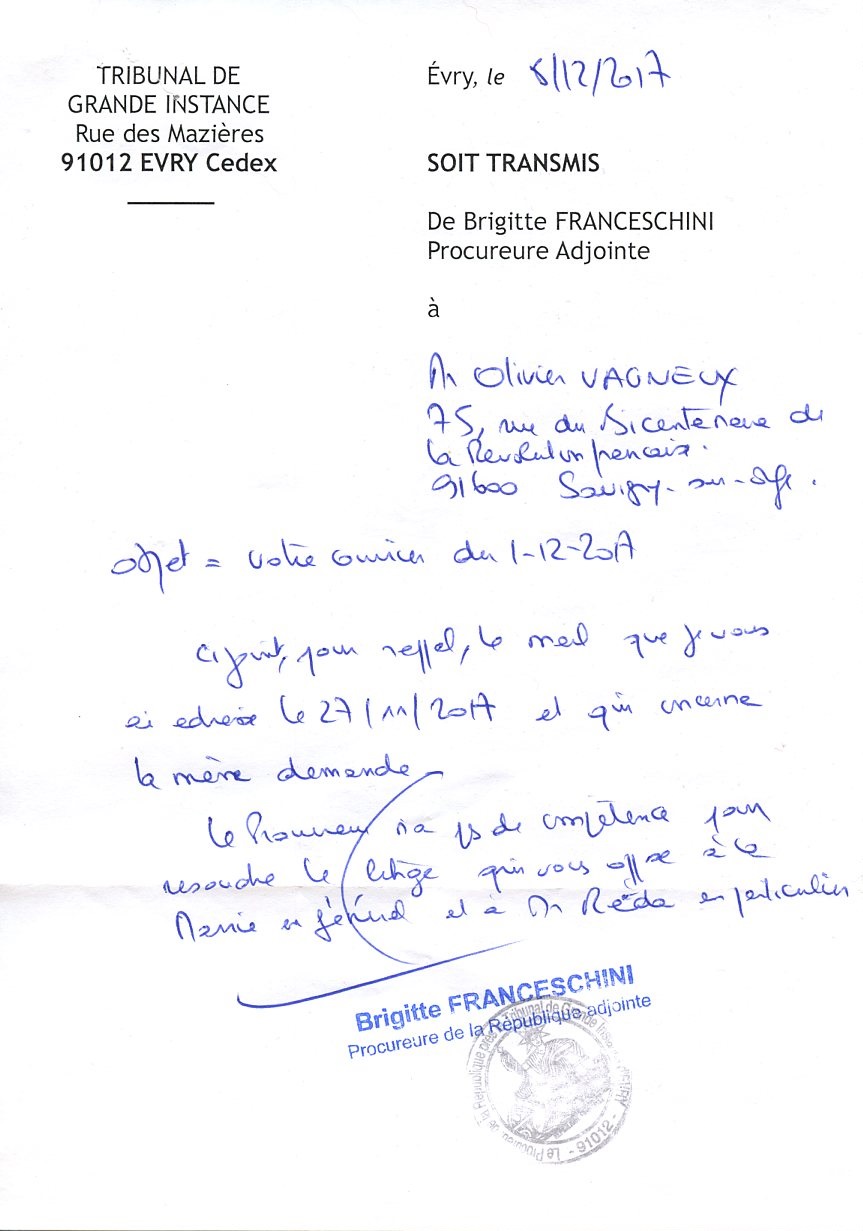 TRIBUNAL DE
GRANDE INSTANCE
Rue des Mazières
91012 EVRY Cedex
Évry, le 8/12/2017
SOIT TRANSMIS
De Brigitte FRANCESCHINI
Procureure Adjointe
à
Mr Olivier VAGNEUX
75, rue du Bicentenaire de
la Révolution française.
91600 Savigny-sur-Orge.
Objet = votre courrier du 1-12-2017
Ci joint, pour rappel, le mail que je vous
ai adressé le 27/11/2017 et qui concerne
la même demande
Le Procureur n'a pas de compétence pour
resoudre le litige qui vous oppose à la
Mairie en général et à Mr Réda en particulier
Brigitte FRANCESCHINI
Procureure de la République adjointe
Le Procureur de la République près le Tribunal de Grande Instance
- 91012 -